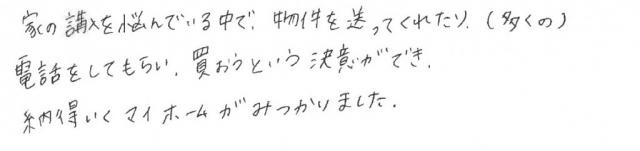 家の購入を悩んでいる中で、物件を送ってくれたり、(多くの)
電話をしてもらい、買おうという決意ができ、
納得いくマイホームがみつかりました。